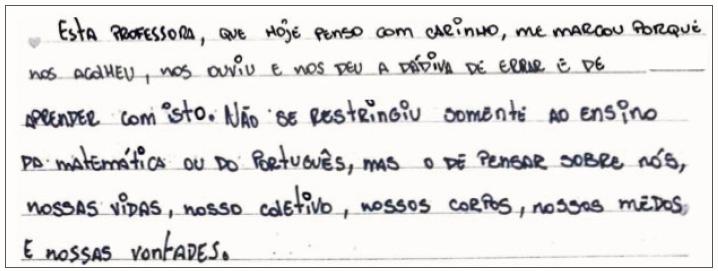 Esta professora, que hoje penso com carinho, me marcou porquê
nos acolheu, nos ouviu e nos deu a dádiva de errar e de
aprender com isto. Não se restringiu somente ao ensino
da matemática ou do português, mas o de pensar sobre nós,
nossas vidas, nosso coletivo, nossos corpos, nossos medos
e nossas vontades.